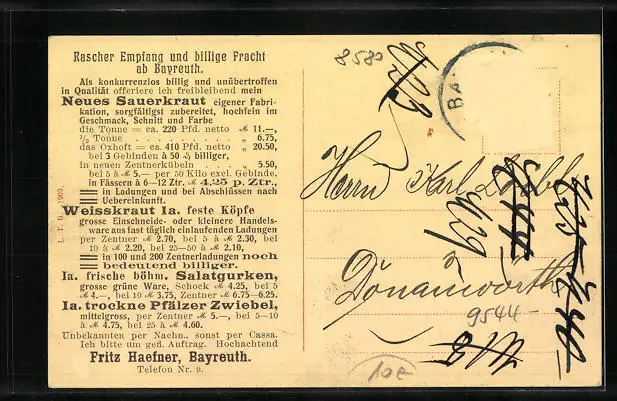 Rascher Empfang und billige Fracht
ab Bayreuth.
Als konkurrenzlos billig und unübertroffen
in Qualität offeriere ich freibleibend mein
Neues Sauerkraut eigener Fabri-
kation, sorgfältigst zubereitet, hochfein im
Geschmack, Schnitt und Farbe
die Tonne = ca. 220 Pfd. netto ℳ 11.—,
½ Tonne . . . . . . . „ 6.75,
das Oxhoft = ca. 410 Pfd. netto „ 20.50,
bei 3 Gebinden à 50 ₰ billiger,
in neuen Zentnerkübeln . . . „ 5.50,
bei 5 à ℳ 5.— per 50 Kilo exel. Gebinde,
in Fässern à 6—12 Ztr. ℳ 4,25 p. Ztr.,
in Ladungen und bei Abschlüssen nach
Uebereinkunft.
Weisskraut Ia. feste Köpfe
grosse Einschneide- oder kleinere Handels-
ware aus fast täglich einlaufenden Ladungen
per Zentner ℳ 2.70, bei 5 à ℳ 2.30, bei
10 à ℳ 2.20, bei 25—50 à ℳ 2.10,
in 100 und 200 Zentnerladungen noch
bedeutend billiger.
Ia. frische böhm. Salatgurken,
grosse grüne Ware, Schock ℳ 4.25, bei 5
ℳ 4.—, bei 10 ℳ 3.75, Zentner ℳ 6.75—6.25.
Ia. trockne Pfälzer Zwiebel,
mittelgross, per Zentner ℳ 5.—, bei 5—10
à ℳ 4.75, bei 25 à ℳ 4.60.
Unbekannten per Nachn., sonst per Cassa.
Ich bitte um gefl. Auftrag. Hochachtend
Fritz Haefner, Bayreuth.
Telefon Nr. 9.
1909.
8580
BA
Herrn Karl
429
Donauwörth
9544-
10€